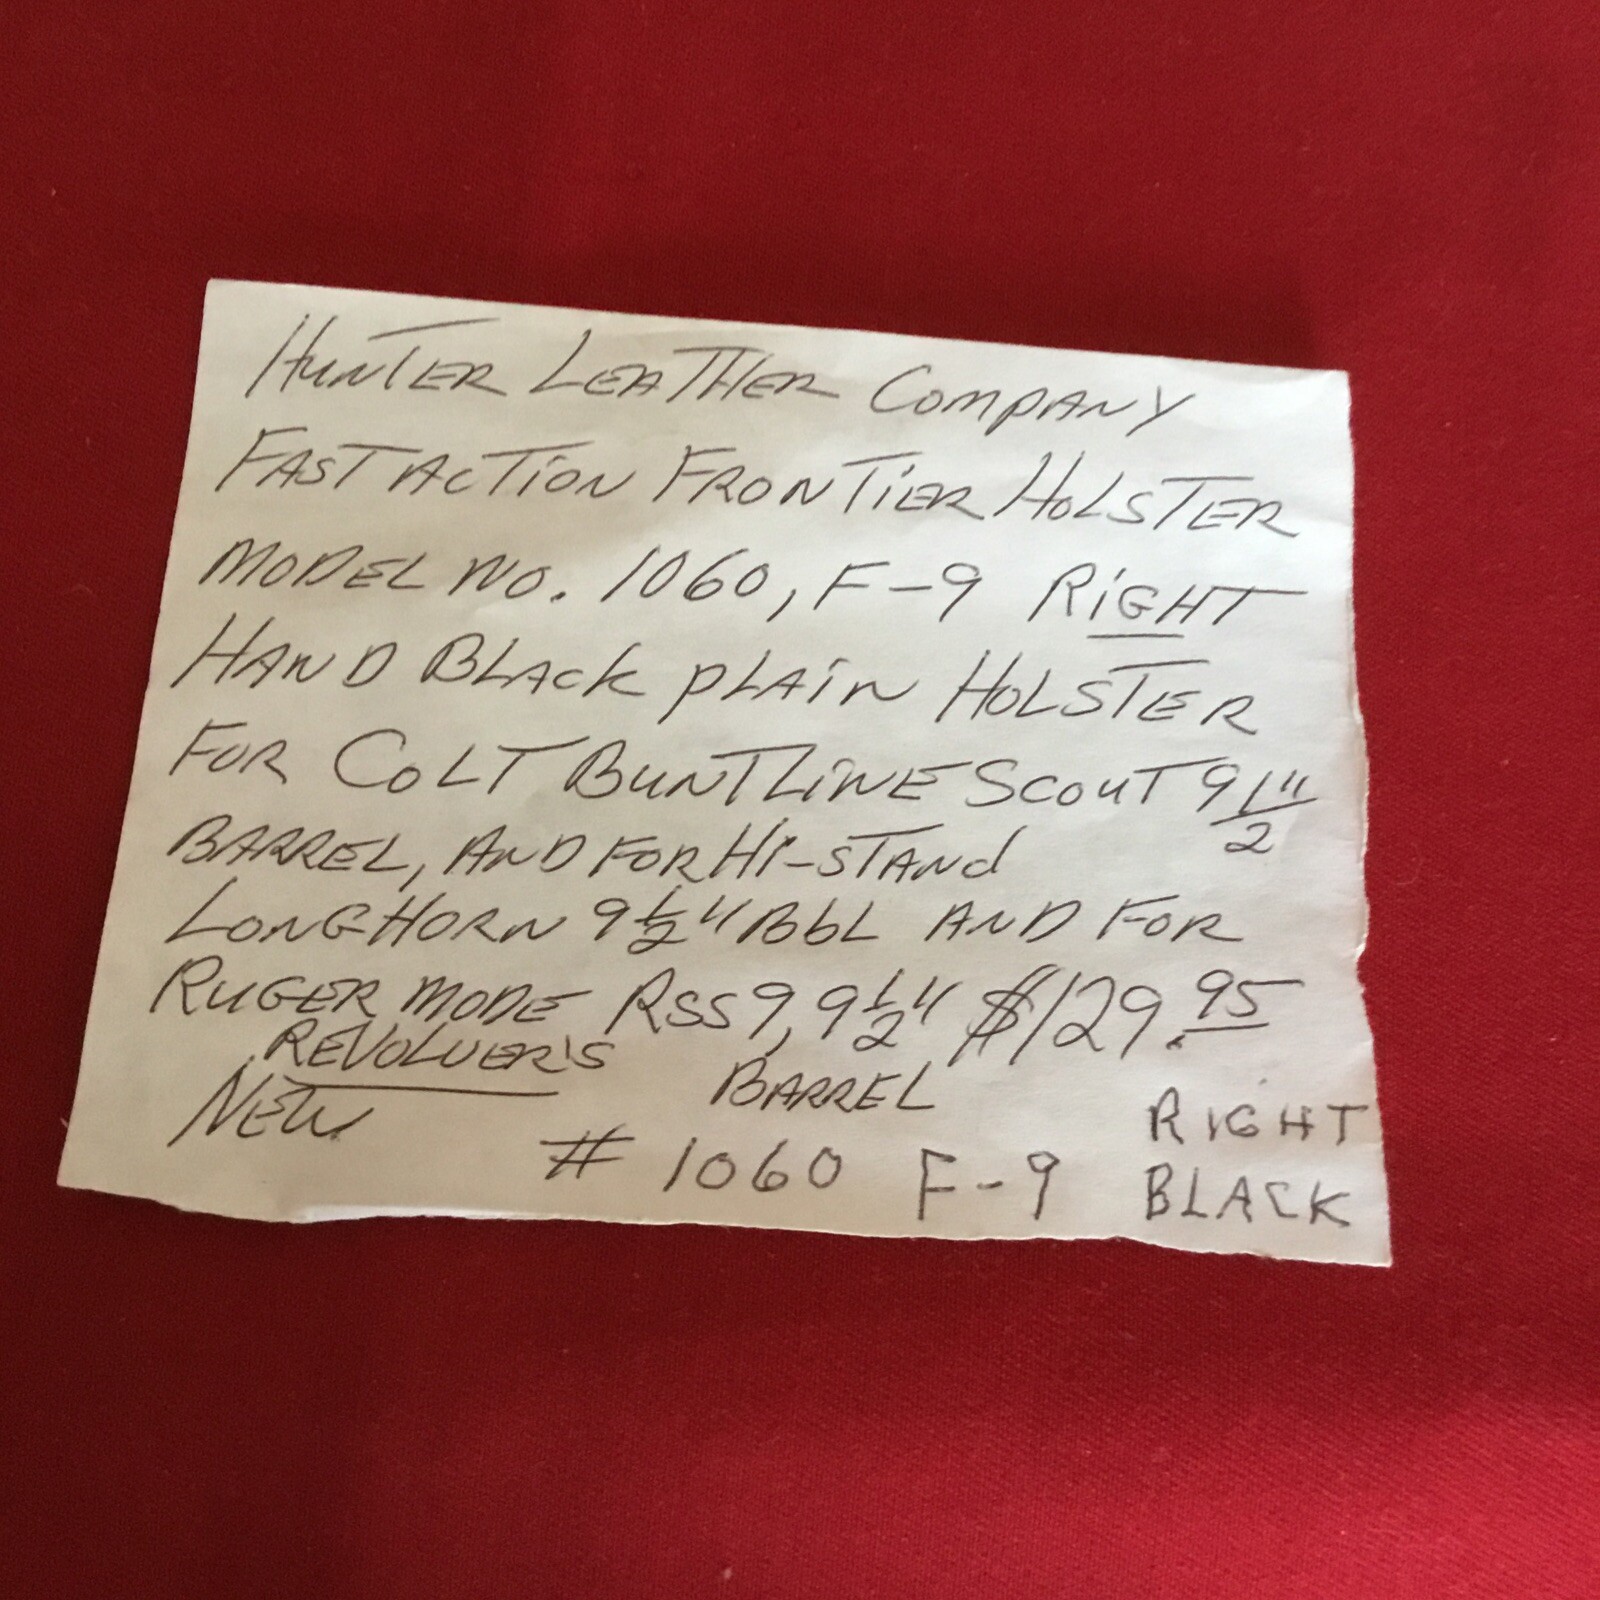 HUNTER LEATHER COMPANY
FAST ACTION FRONTIER HOLSTER
MODEL NO. 1060, F-9 RIGHT
HAND BLACK PLAIN HOLSTER
FOR COLT BUNTLINE SCOUT 9 1/2"
BARREL, AND FOR HI-STAND
LONGHORN 9 1/2" BbL AND FOR
RUGER MODE RSS9, 9 1/2" $129.95
REVOLVER'S BARREL
NEW
# 1060 F-9 RIGHT
BLACK